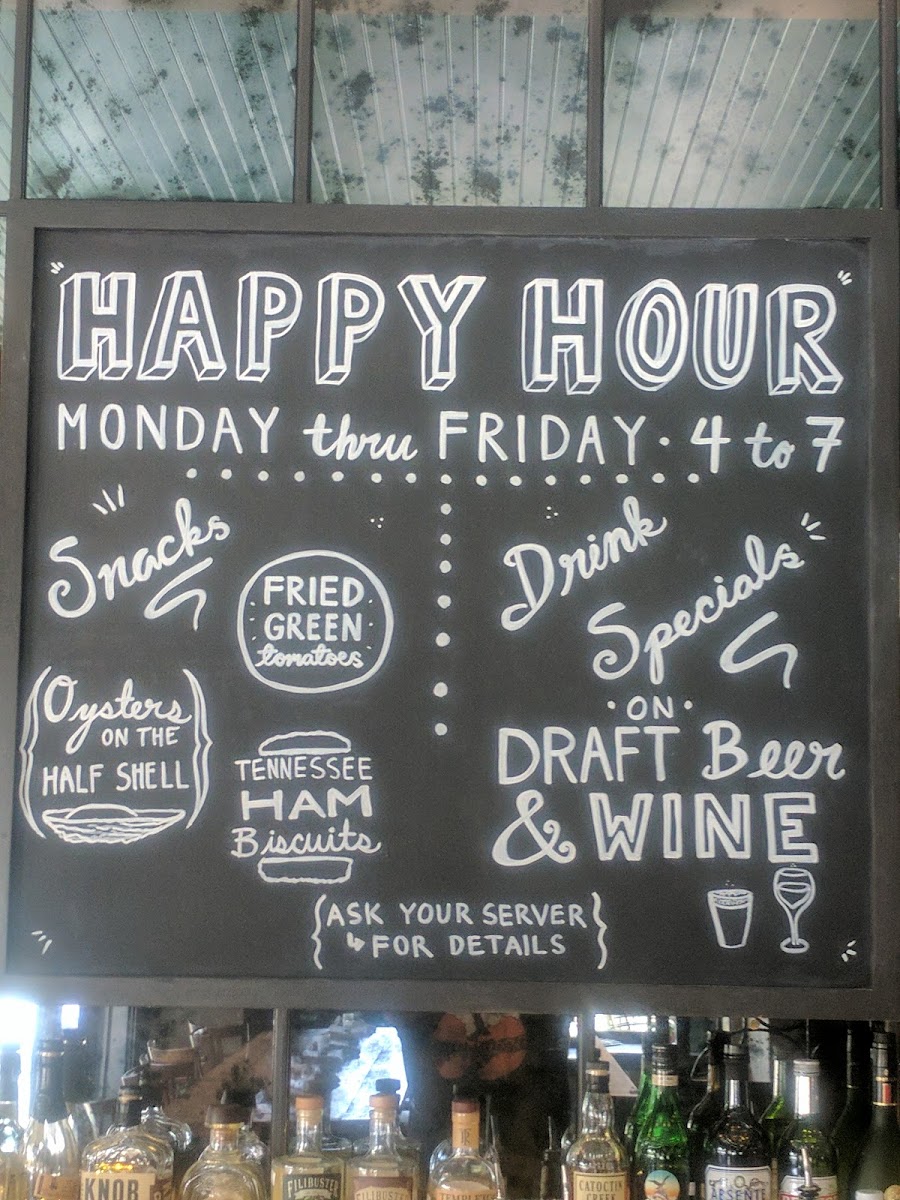 HAPPY HOUR
MONDAY thru FRIDAY · 4 to 7
Snacks
FRIED
GREEN
tomatoes
Oysters
ON THE
HALF SHELL
TENNESSEE
HAM
Biscuits
Drink
Specials
· ON ·
DRAFT Beer
& WINE
(ASK YOUR SERVER
FOR DETAILS)
KNOB
FILIBUSTER
CATOCTIN
CREEK